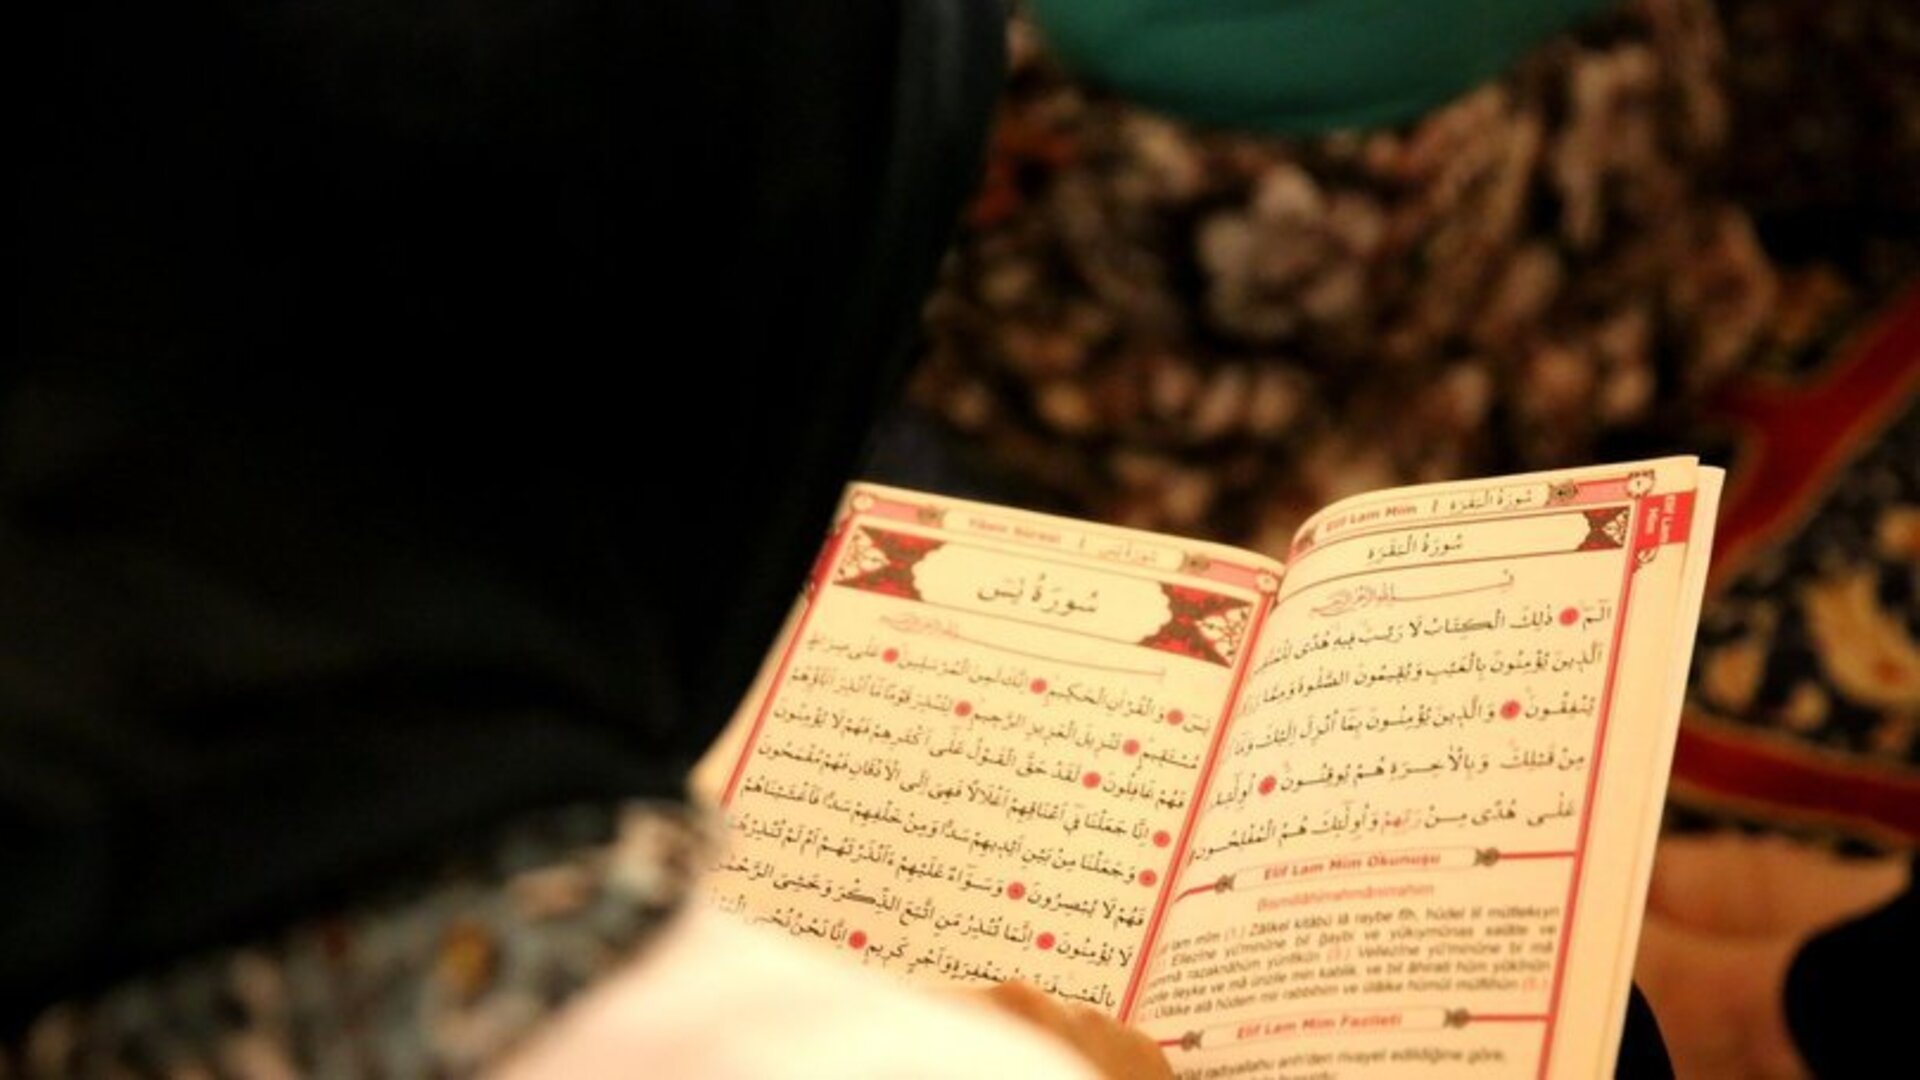 Elif Lam Mim / سُورَةُ الْبَقَرَةِ
Elif Lam Mim
سُورَةُ الْبَقَرَةِ
الٓمٓ ذٰلِكَ الْكِتَابُ لَا رَيْبَ فِيهِ هُدًى
اَلَّذِينَ يُؤْمِنُونَ بِالْغَيْبِ وَيُقِيمُونَ الصَّلٰوةَ وَمِمَّا
يُنْفِقُونَ وَالَّذِينَ يُؤْمِنُونَ بِمَٓا اُنْزِلَ اِلَيْكَ وَمَٓا
مِنْ قَبْلِكَ وَبِالْاٰخِرَةِ هُمْ يُوقِنُونَ
عَلٰى هُدًى مِنْ رَبِّهِمْ وَاُولٰٓئِكَ هُمُ الْمُفْلِحُونَ
Elif Lam Mim Okunuşu
Bismillâhirrahmânirrahîm
lam mîm (1.) Zâlikel kitâbü lâ raybe fîh, hüdel lil müttekıyn
Ellezîne yü'minûne bil ğaybi ve yükıymûnas salâte ve
razaknâhüm yünfikûn (3.) Vellezîne yü'minûne bi mâ
ileyke ve mâ ünzile min kablik, ve bil âhırati hüm yûkınûn
Ülâike alâ hüdem mir rabbihim ve ülâike hümül müflihûn (5.)
Elif Lam Mim Fazileti
radıyallahu anh'den rivayet edildiğine göre,
Yâsin Sûresi / سُورَةُ يٰسٓ
سُورَةُ يٰسٓ
يٰسٓ وَالْقُرْاٰنِ الْحَكِيمِ اِنَّكَ لَمِنَ الْمُرْسَلِينَ عَلٰى صِرَاطٍ
مُسْتَقِيمٍ تَنْزِيلَ الْعَزِيزِ الرَّحِيمِ لِتُنْذِرَ قَوْمًا مَٓا اُنْذِرَ اٰبَٓاؤُهُمْ
فَهُمْ غَافِلُونَ لَقَدْ حَقَّ الْقَوْلُ عَلٰٓى اَكْثَرِهِمْ فَهُمْ لَا يُؤْمِنُونَ
اِنَّا جَعَلْنَا فِٓي اَعْنَاقِهِمْ اَغْلَالًا فَهِيَ اِلَى الْاَذْقَانِ فَهُمْ مُقْمَحُونَ
وَجَعَلْنَا مِنْ بَيْنِ اَيْدِيهِمْ سَدًّا وَمِنْ خَلْفِهِمْ سَدًّا فَاَغْشَيْنَاهُمْ
فَهُمْ لَا يُبْصِرُونَ وَسَوَٓاءٌ عَلَيْهِمْ ءَاَنْذَرْتَهُمْ اَمْ لَمْ تُنْذِرْهُمْ
لَا يُؤْمِنُونَ اِنَّمَا تُنْذِرُ مَنِ اتَّبَعَ الذِّكْرَ وَخَشِيَ الرَّحْمٰنَ
بِالْغَيْبِ بِمَغْفِرَةٍ وَاَجْرٍ كَرِيمٍ اِنَّا نَحْنُ نُحْيِ